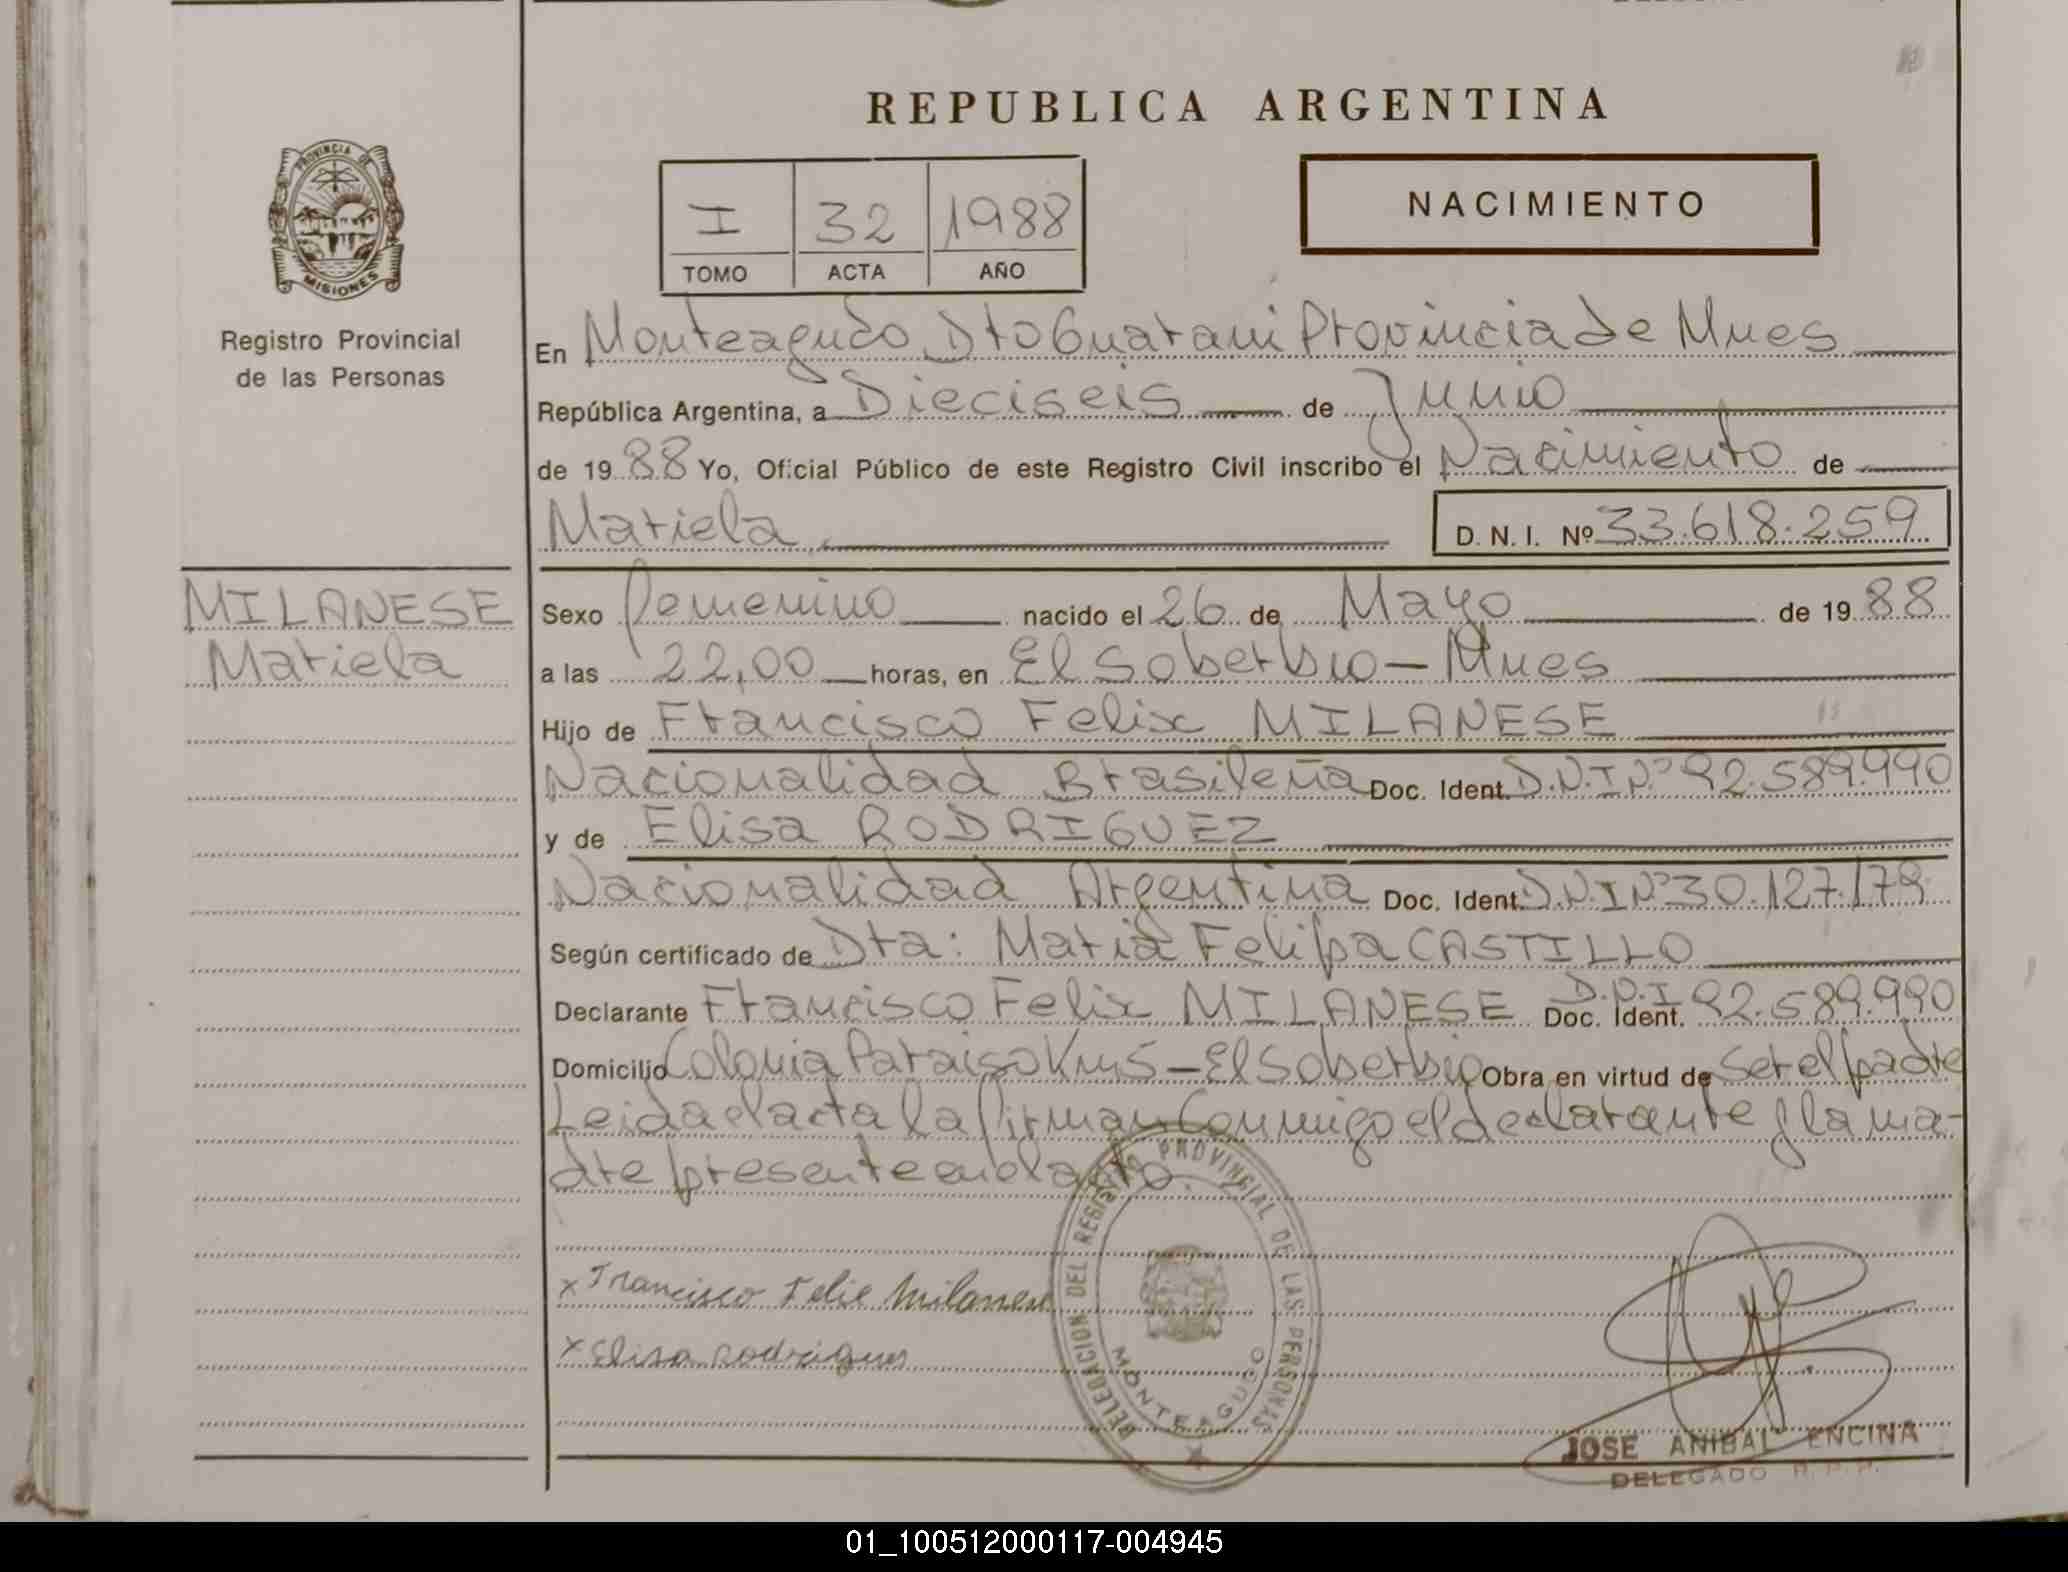 REPUBLICA ARGENTINA
PROVINCIA DE
MISIONES
Registro Provincial
de las Personas
I 32 1988
TOMO ACTA AÑO
NACIMIENTO
En Monteagudo, Dto Guarani Provincia de Mnes
República Argentina, a Dieciseis de Junio
de 19 88 Yo, Oficial Público de este Registro Civil inscribo el Nacimiento de
Mariela D. N. I. Nº 33.618.259
MILANESE
Mariela
Sexo femenino nacido el 26 de Mayo de 19 88
a las 22,00 horas, en El Soberbio - Mnes
Hijo de Francisco Felix MILANESE
Nacionalidad Brasileña Doc. Ident. D.N.I Nº 92.589.990
y de Elisa RODRIGUEZ
Nacionalidad Argentina Doc. Ident. D.N.I Nº 30.127.179
Según certificado de Dra: Maria Felipa CASTILLO
Declarante Francisco Felix MILANESE Doc. Ident. D.N.I 92.589.990
Domicilio Colonia Paraiso Km 5 - El Soberbio Obra en virtud de ser el padre
Leida el acta la firman conmigo el declarante y la ma-
dre presente en el acto.
x Francisco Felix Milanese
x Elisa Rodrigues
DELEGACION DEL REGISTRO PROVINCIAL DE LAS PERSONAS
MONTEAGUDO
JOSE ANIBAL ENCINA
DELEGADO R. P. P.
01_100512000117-004945